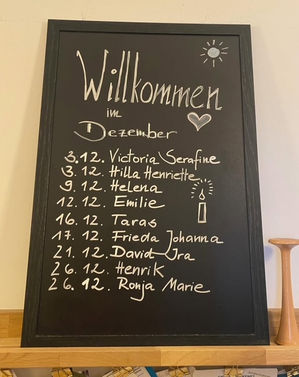 Willkommen
im
Dezember
3.12. Victoria Serafine
3.12. Hilla Henriette
9.12. Helena
12.12. Emilie
16.12. Taras
17.12. Frieda Johanna
21.12. David Ira
26.12. Henrik
26.12. Ronja Marie